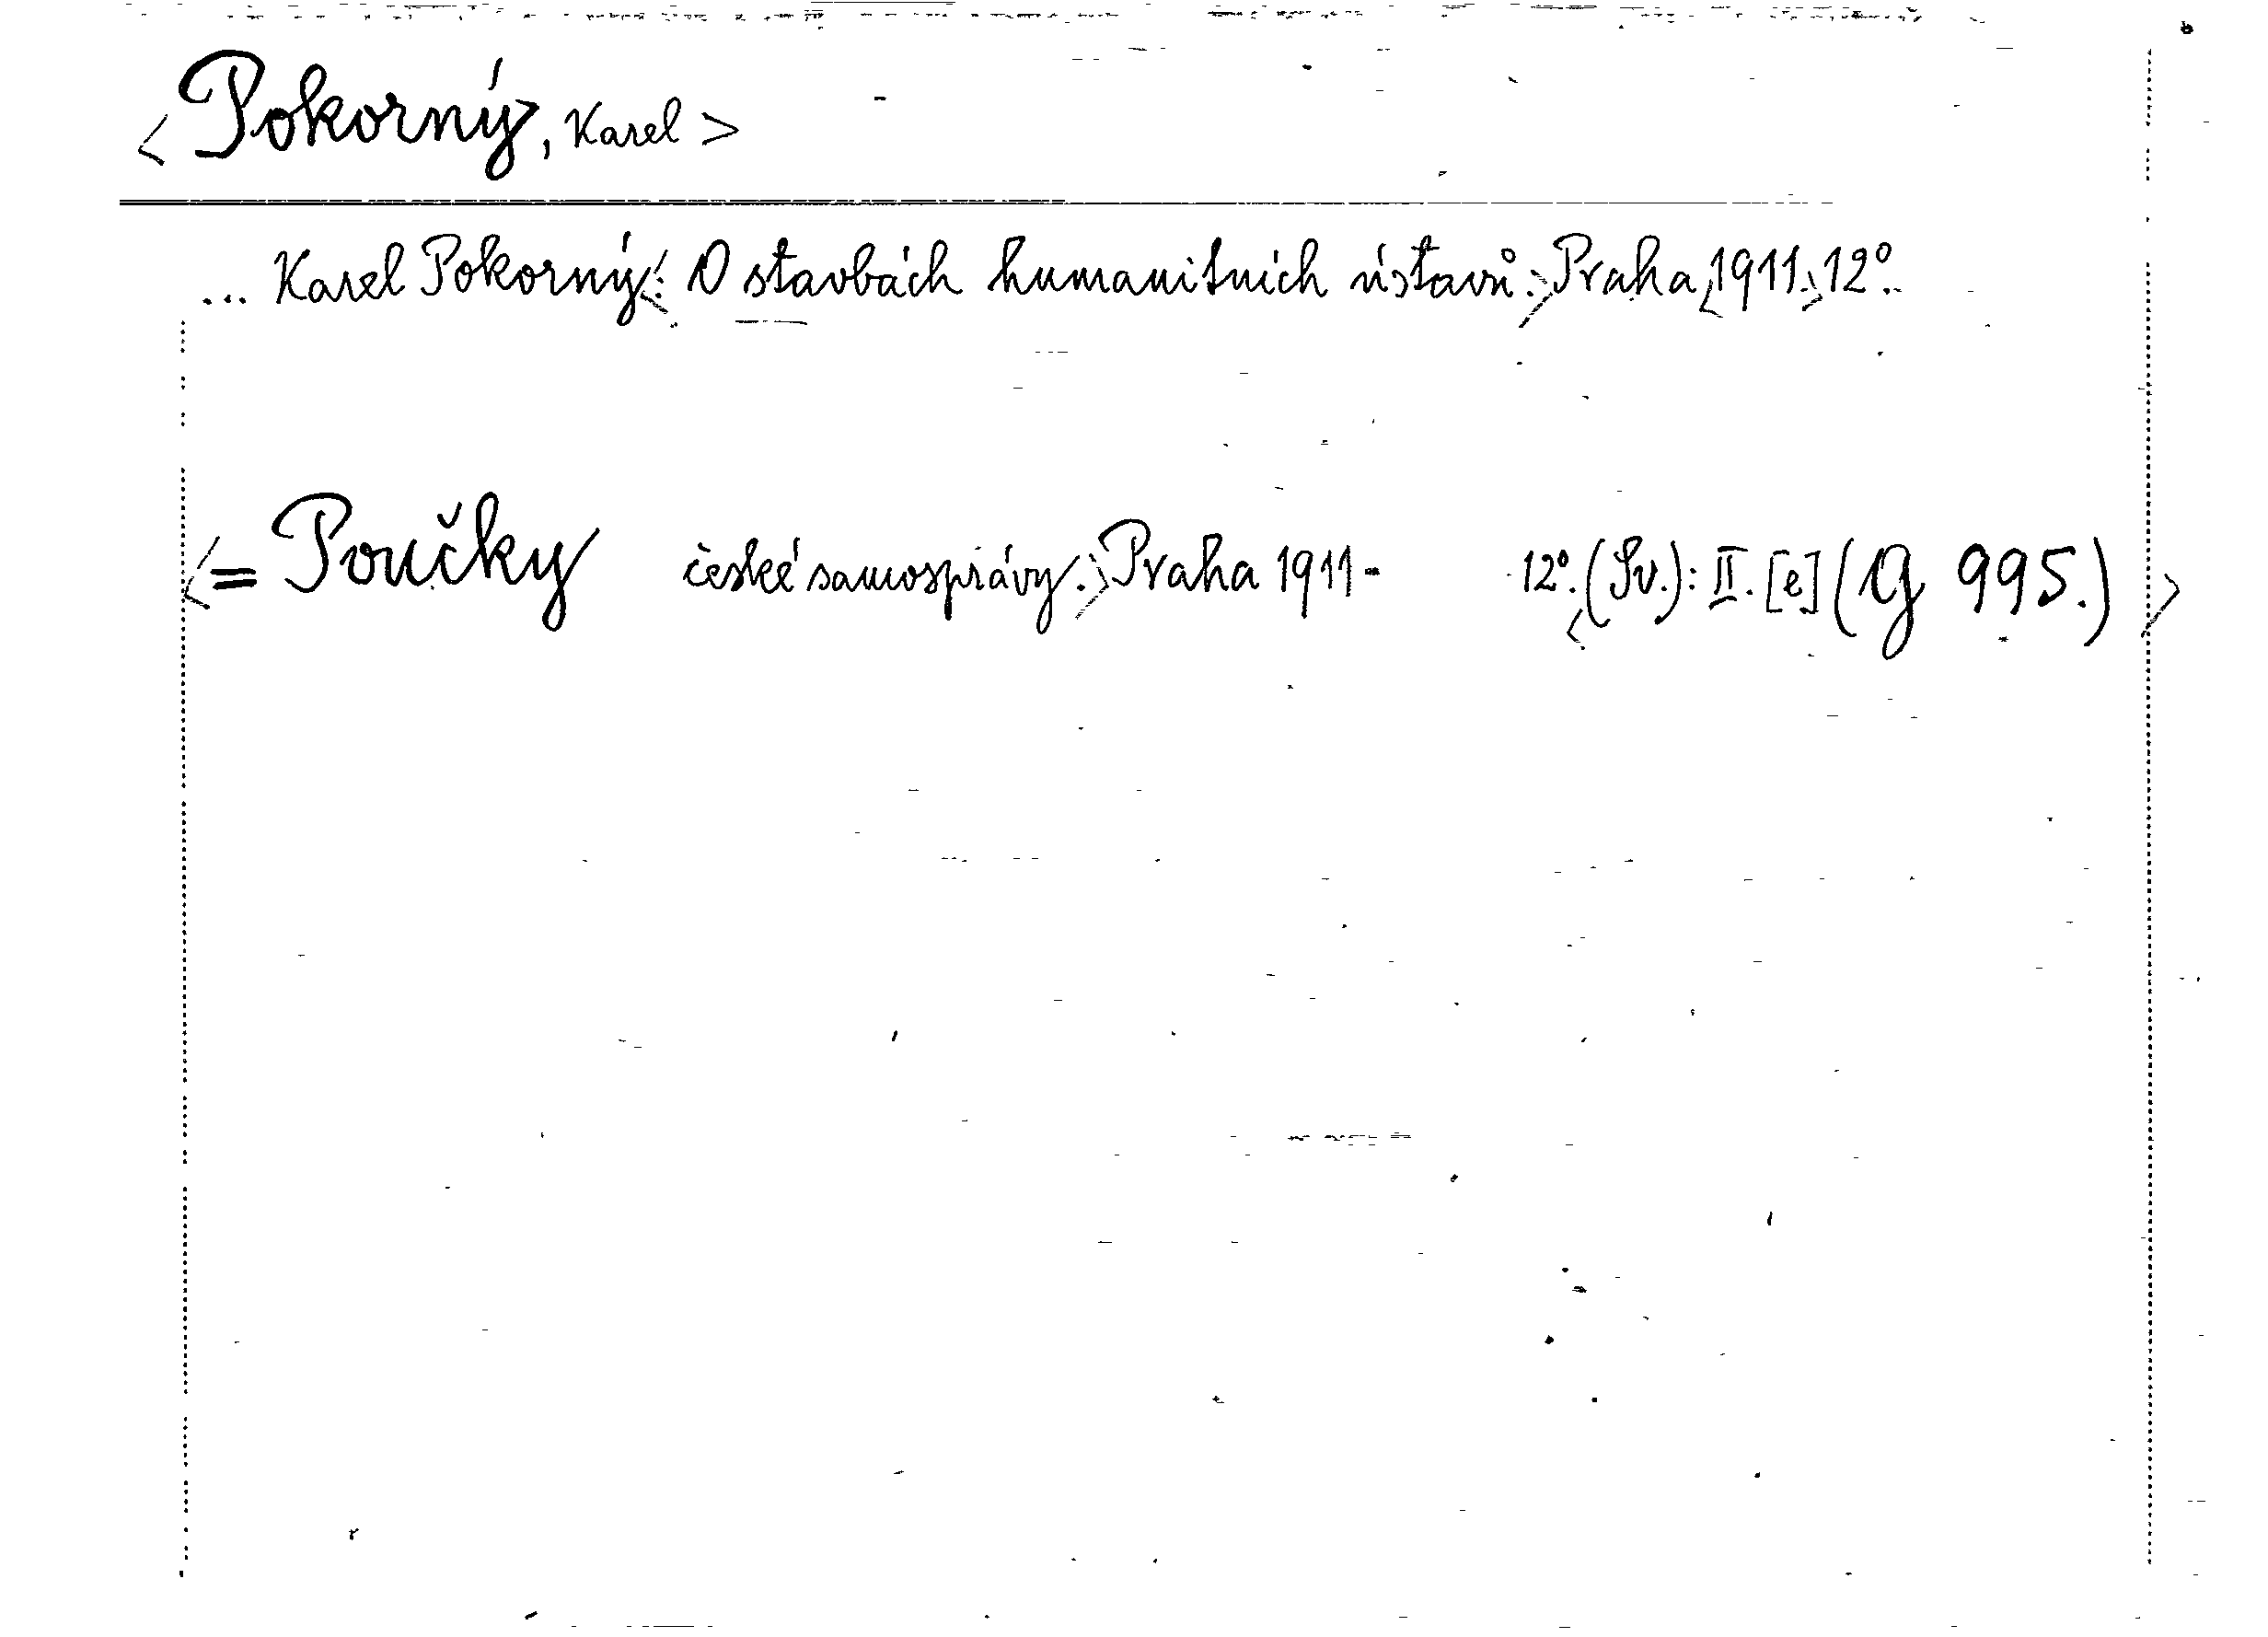 <Pokorný, Karel>
... Karel Pokorný<: O stavbách humanitních ústavů.> Praha <1911.> 12°.
<= Poučky české samosprávy.> Praha 1911- 12°. <(Sv.): II. [e] (G 995.)>